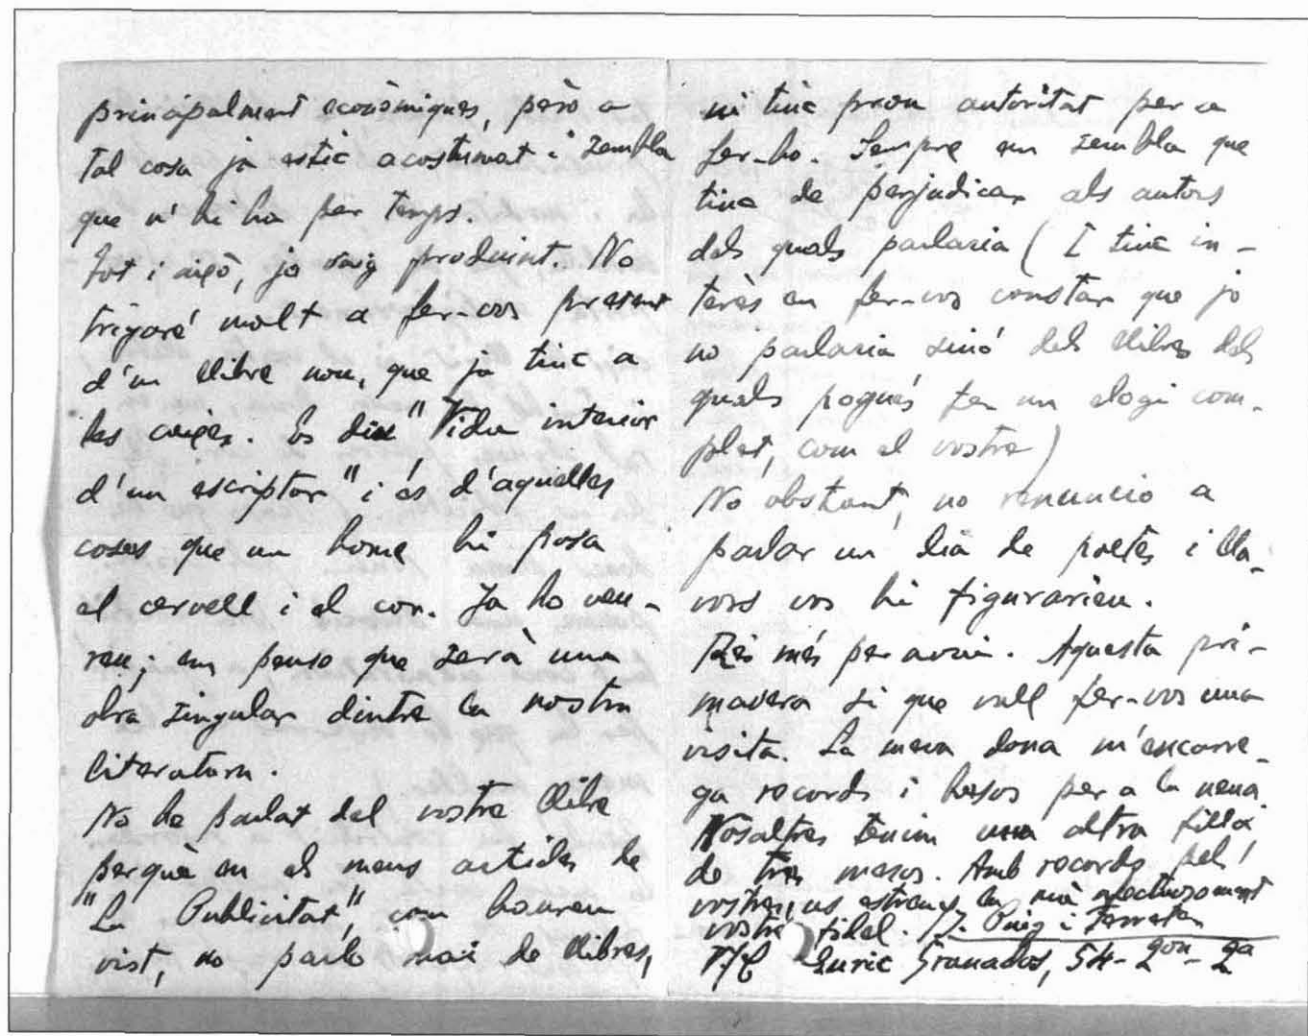 principalment econòmiques, però a
tal cosa ja estic acostumat i sembla
que n'hi ha per temps.
Tot i això, jo vaig produint. No
trigaré molt a fer-vos present
d'un llibre nou, que ja tinc a
les caixes. Es diu "Vida interior
d'un escriptor" i és d'aquelles
coses que un home hi posa
el cervell i el cor. Ja ho veu-
reu; em penso que serà una
obra singular dintre la nostra
literatura.
No he parlat del vostre llibre
perquè en els meus articles de
"La Publicitat", com haureu
vist, no parlo mai de llibres,
ni tinc prou autoritat per a
fer-ho. Sempre em sembla que
tinc de perjudicar als autors
dels quals parlaria (I tinc in-
terès en fer-vos constar que jo
no parlaria sinó dels llibres dels
quals pogués fer un elogi com-
plet, com el vostre)
No obstant, no renuncio a
parlar un dia de poetes i lla-
vors vos hi figurarieu.
Res més per avui. Aquesta pri-
mavera si que vull fer-vos una
visita. La meva dona m'encarre-
ga records i besos per a la nena.
Nosaltres tenim una altra filla
de tres mesos. Amb records pels
vostres, us estreny la mà afectuosament
vostre fidel. J. Puig i Ferreter
S/C Enric Granados, 54-2on-2a